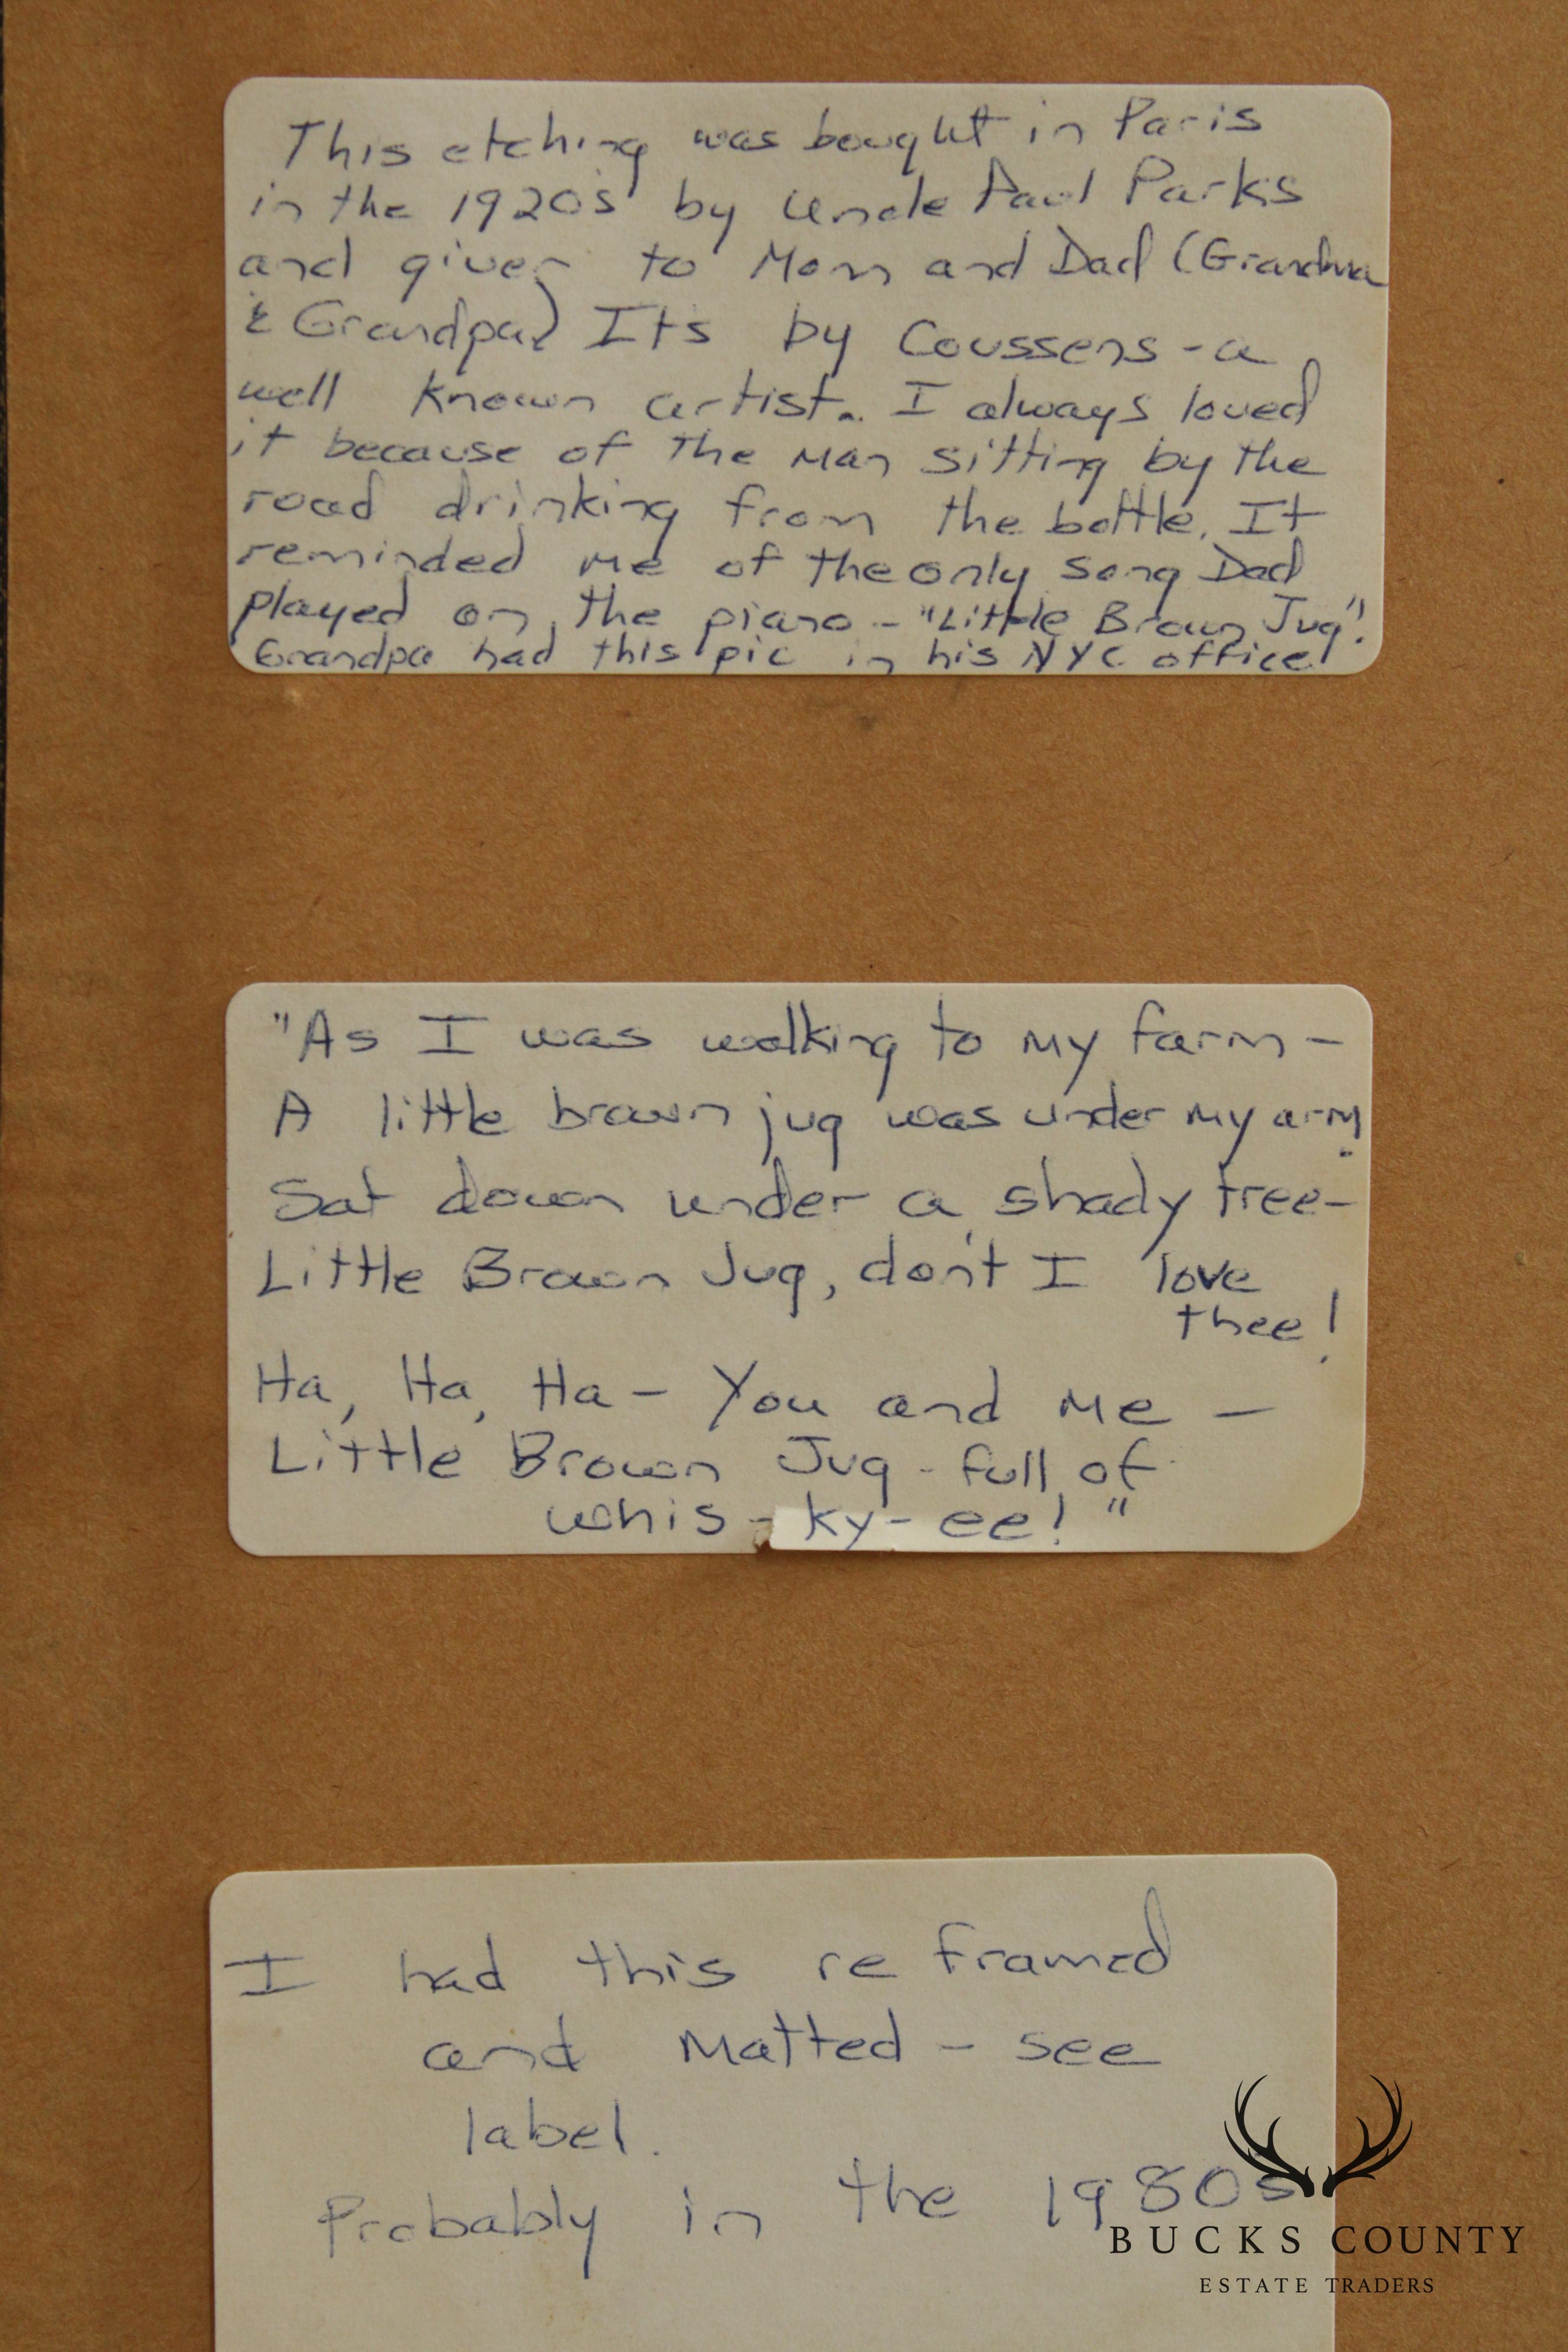 This etching was bought in Paris
in the 1920s by Uncle Paul Parks
and given to Mom and Dad (Grandma
& Grandpa) It's by Coussens - a
well known artist. I always loved
it because of the man sitting by the
road drinking from the bottle. It
reminded me of the only song Dad
played on the piano - "Little Brown Jug".
Grandpa had this pic in his NYC office!
"As I was walking to my farm -
A little brown jug was under my arm.
Sat down under a shady tree -
Little Brown Jug, don't I love
thee!
Ha, Ha, Ha - You and me -
Little Brown Jug - full of
whis - ky - ee! "
I had this re framed
and matted - see
label.
Probably in the 1980s
BUCKS COUNTY
ESTATE TRADERS